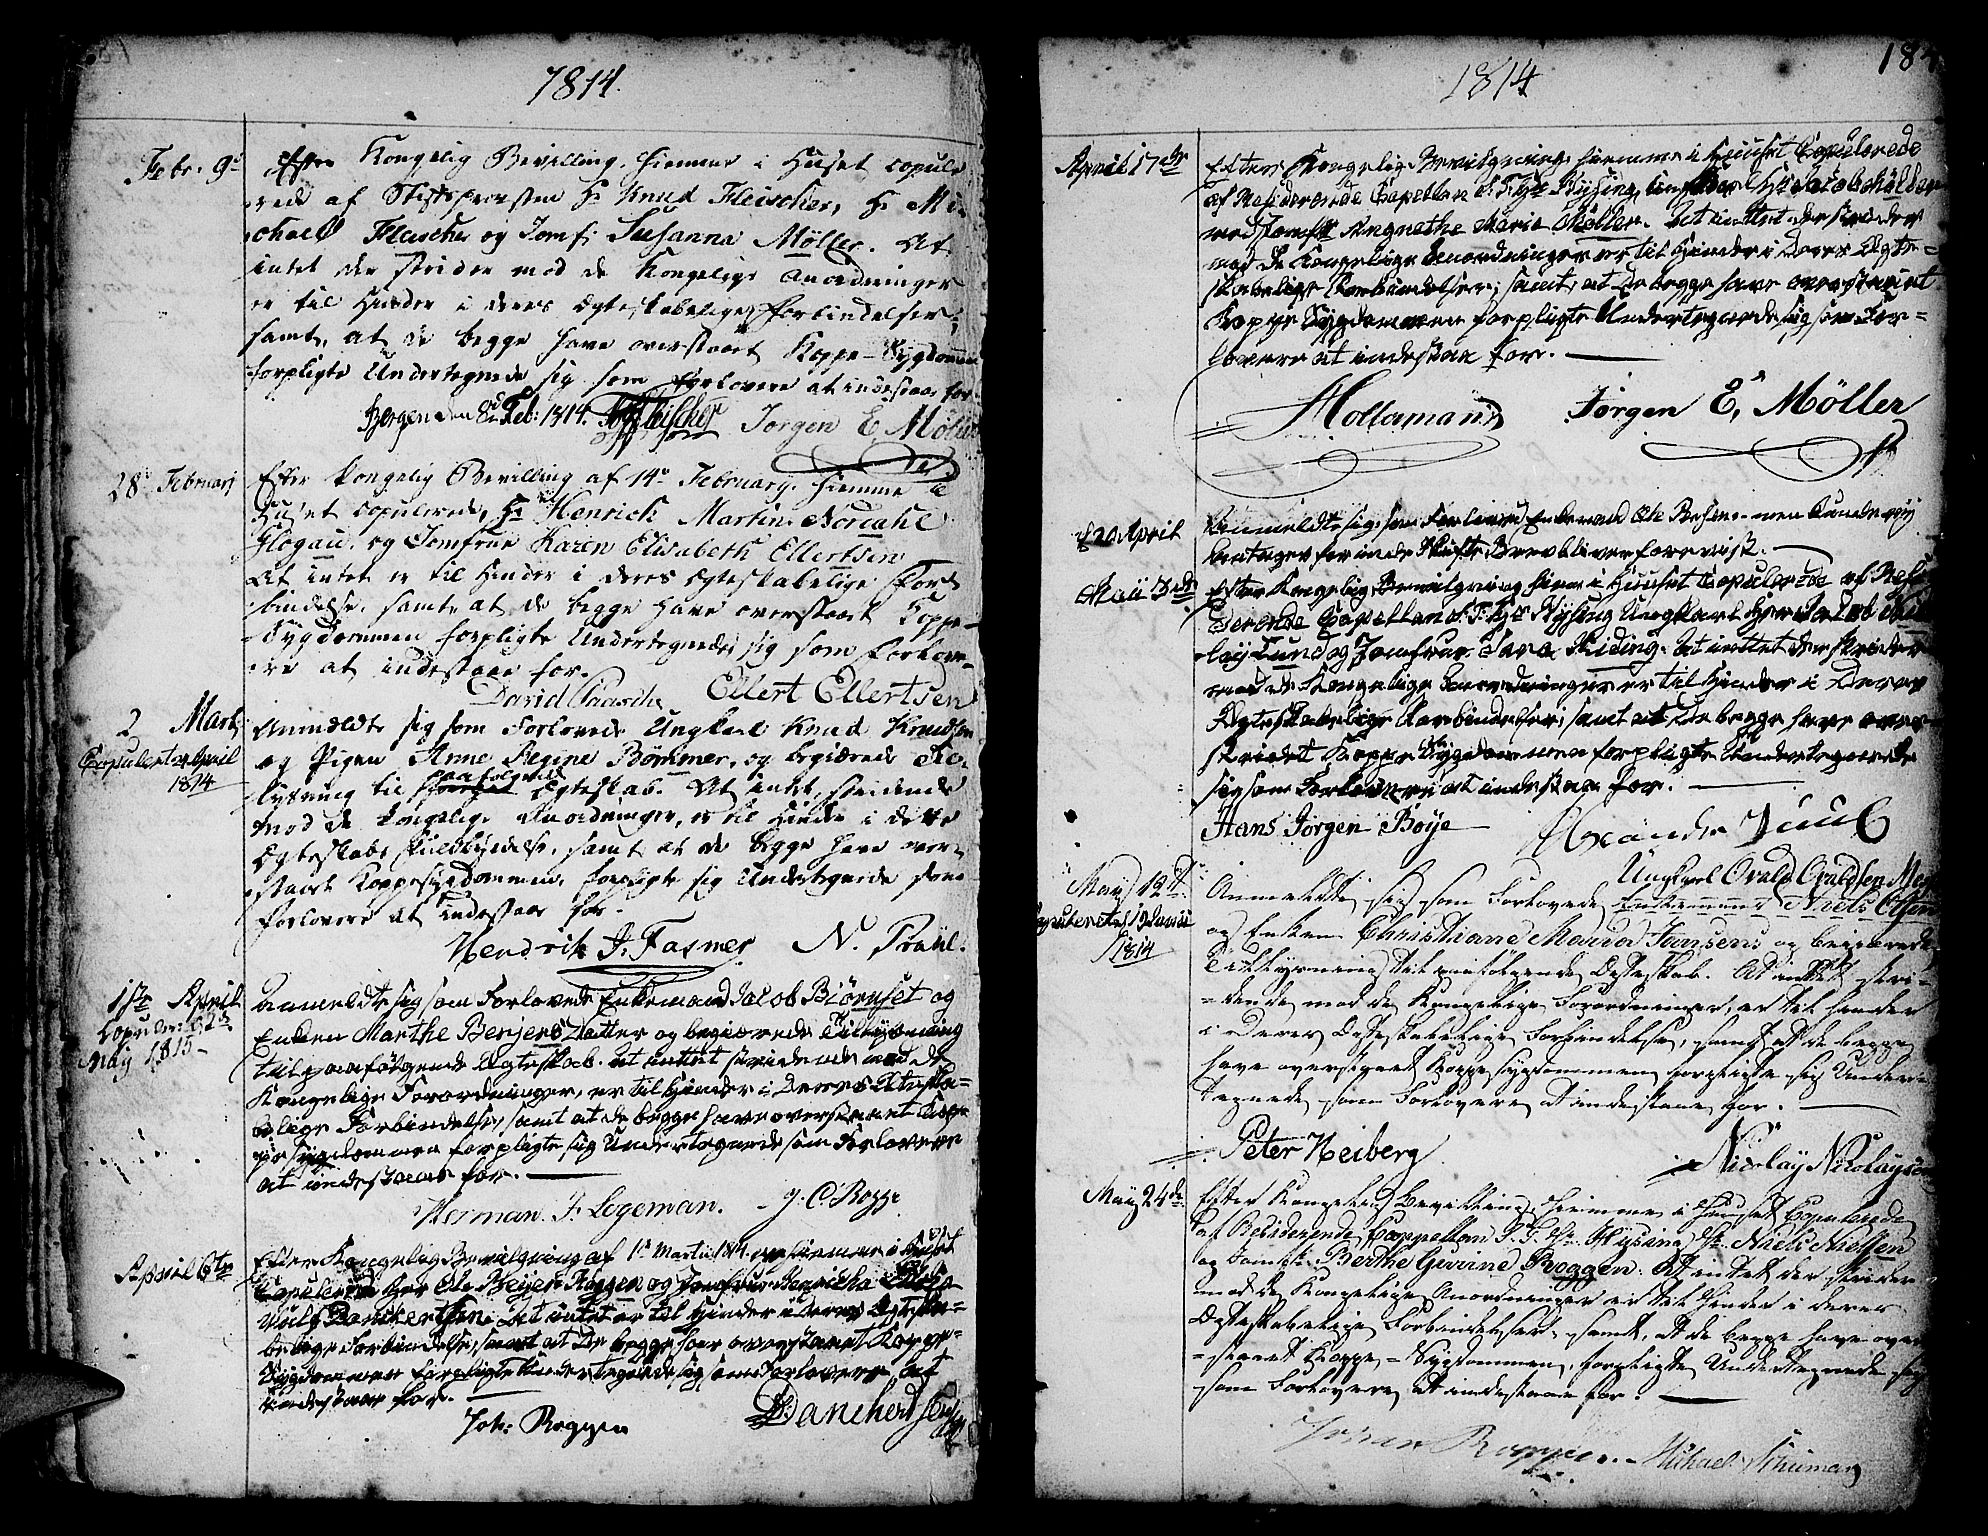 1814.
Febr. 9d
Efter Kongelig Bevilling, hiemme i Huset copule-
rede af Stiftsprovsten Hr Knud Fleischer, Hr Mi-
chael Fleischer og Jomf: Susanna Möller. At
intet der strider mod de Kongelige Anordninger
er til Hinder i deres Ægteskabelige Forbindelse,
samt, at de begge have overstaaet Koppe-Sygdommen
forpligte Undertegnede sig som Forlovere at indestaae for
Bergen den 8de Feb: 1814. Fleischer Jørgen E. Möller
28d Februarj
Efter kongelig Bevilling af 14d February, hiemme i
Huset copulerede, Hr Henrich Martin Nordahl
og Jomfrue Karen Elisabeth Ellertsen
At intet er til Hinder i deres Ægteskabelige For-
bindelse, samt, at de begge have overstaaet Koppe-
Sygdommen forpligte Undertegnede sig som Forlove-
re at indestaae for.
David Ellert Ellertsen
2 Marti
Copulert April
1814
Anmeldte sig som Forlovede Ungkarl Knud Knudsen
og Pigen Anne Regine Bömmer, og begiærede Til-
lysning til paafølgende Ægteskab. At intet, stridende
mod de kongelige Anordninger, er til Hinder i dette
Ægteskabs fuldbyrdelse, samt at de begge have over-
staaet Koppesygdommen, forpligte sig Undertegnede som
Forlovere at indestaae for.
Hendrik J. Fasmer N. Prahl.
1ste April
Copuleret
May 1815
Anmeldte sig som Forlovede Enkemand Jacob Biörnset og
Enken Marthe Berjers Datter og begiærede Tillysning
til paafølgende Ægteskab. At intet stridende mod de
Kongelige Forordninger, er til Hinder i Deres Ægteska-
belige Forbindelse, samt at de begge have overstaaet Kop-
pesygdommen forpligte sig Undertegnede som Forlovere
at indestaae for.
Herman J. Logeman. J. C. Bopp
April 6te
Efter Kongelig Bevilgning af 1d Martii 1814. hiemme i Huset
Copulerede Hr Ole Beyer Roggen og Jomfrue Henricha
Danchertsen. At intet er til Hinder i deres Ægteska-
belige Forbindelse, samt at De begge har overstaaet Koppe-
Sygdommen forpligte Undertegnede sig som Forlovere at
indestaae for.
Joh: Roggen Danchertsen
1814
April 17de
Efter Kongelig Bevilgning hiemme i Huset Copulerede
af Residerende Capellan S.T. Hr Hysing
med Jomfr Angnethe Marie Möller. At intet der strider
mod de Kongelige Anordninger er til Hinder i Deres Ægte-
skabelige Forbindelse; samt, at De begge have overstaaet
Koppe Sygdommen forpligte Undertegnede sig som For-
lovere at indestaae for.
Hollaman Jørgen E. Möller
d 20 April
Anmeldte sig som Forlovede Enkemand men
for inde Skifte Brev bliver foreviist.
Maii 3de
Efter Kongelig Bevilgning hiem i Huset Copulerede af Resi-
derende Capellan S.T. Hr Hysing Ungkarl Hr Jacob
Lund og Jomfrue Sara Riding. At intet der strider
mod de Kongelige Anordninger er til Hinder i Deres
Ægteskabelige Forbindelse; samt at De begge have over-
staaet Koppe Sygdommen forpligte Undertegnede
sig som Forlovere at indestaae for.
Hans Jørgen Boye Juul
May 12t
Copuleret d 19 Junii
1814
Ungkarl Ovald Ovaldsen
Anmeldte sig som Forlovede
og Enken Christiane Maria Jansens og begiærede
Tillysning til paafølgende Ægteskab. At intet stri-
dende mod de Kongelige Forordninger, er til Hinder
i Deres Ægteskabelige Forbindelse, samt at de begge
have overstaaet Koppesygdommen, forpligte sig Under-
tegnede som Forlovere at indestaae for.
Peter Heiberg Nicolaÿ Nicolaysen
May 24de
Efter Kongelig Bevilling, hiemme i Huset Copulerede
af Residerende Cappellan S.T. Hr Hysing, Hr Niels Nielsen
og Jomfr: Berthe Gurine Roggen. At intet der strider
mod de Kongelige Anordninger er til Hinder i deres
Ægteskabelige Forbindelse, samt, at de begge have over-
staaet Koppe-Sygdommen, forpligte Undertegnede sig
som Forlovere at indestaae for.
Johan Roggen. Michael Schuman